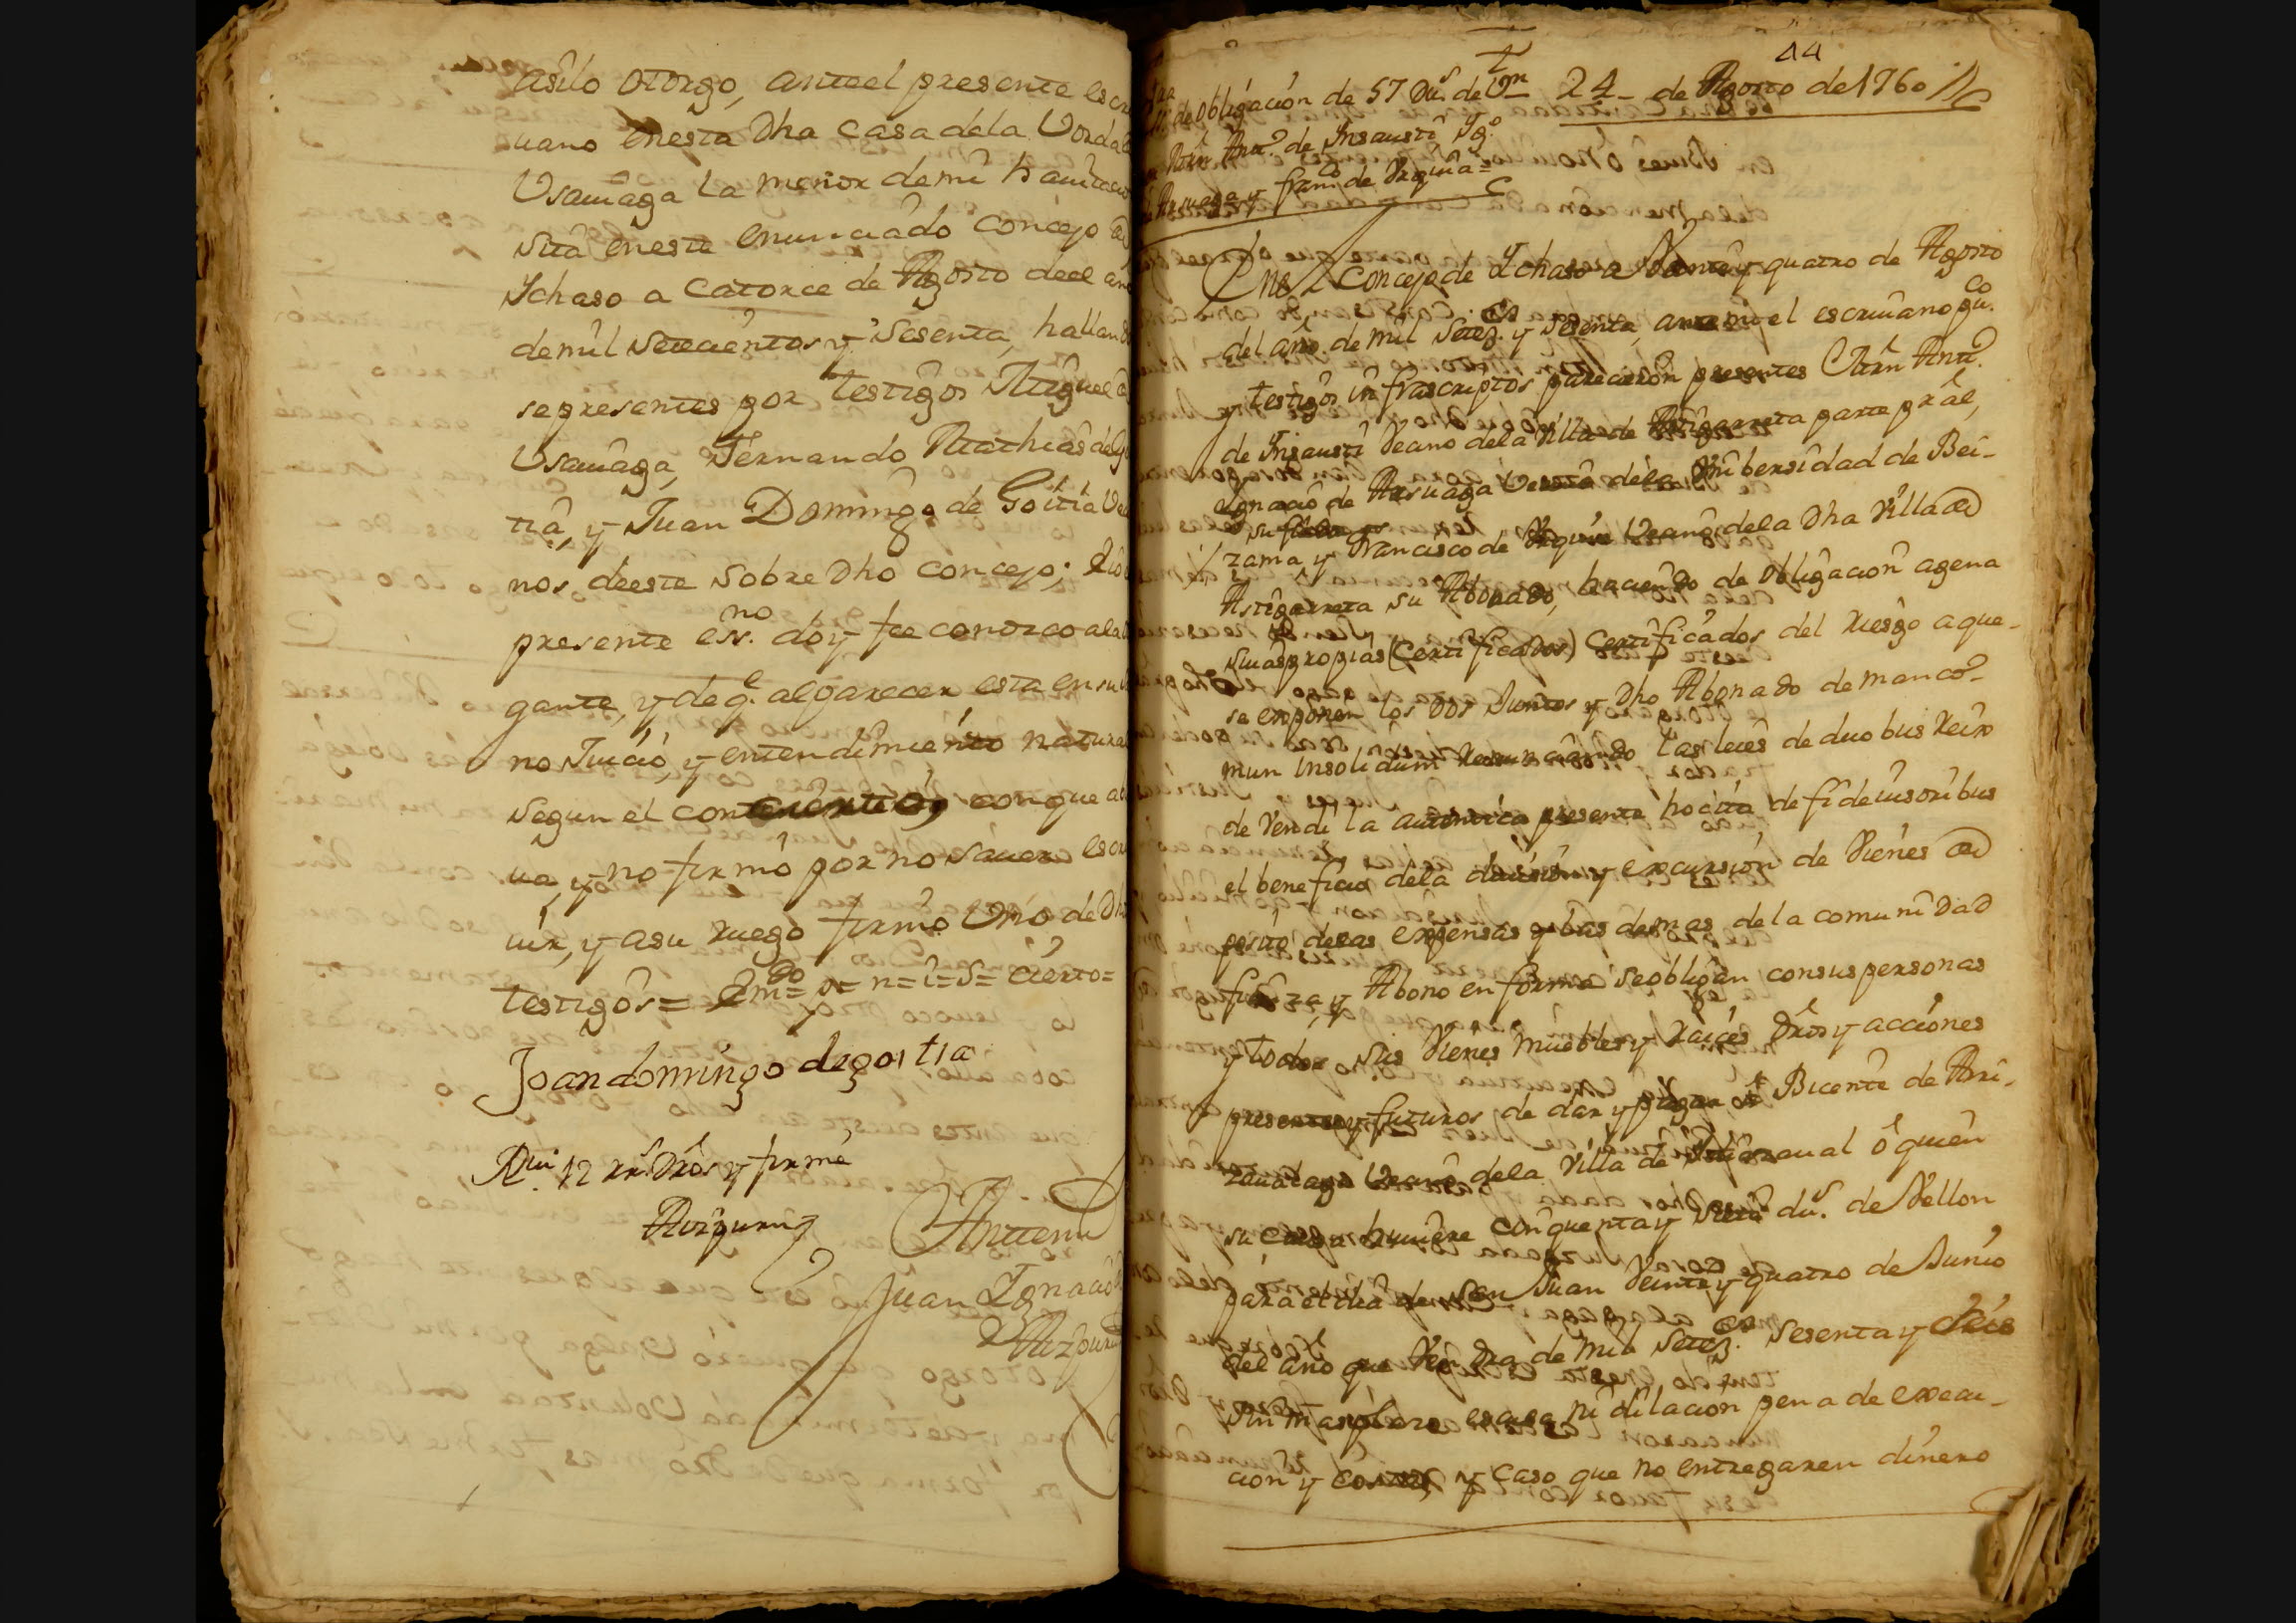 asilo otorgo, ante el presente escri
uano enesta Dha casa dela Vorda
Vsauiaga la menor demi hauitacion
Sita eneste enunciado concejo
Ychaso a catorce de Agosto deel año
demil Setecientos y Sesenta, hallan
sepresentes por testigos Miguel
Vsauiaga, Fernando Mathias de
tia, y Juan Domingo de Goitia Ve
nos deeste sobre Dho concejo;
presente esno. doy fee conozco ala
gante, y deqe. alparecer esta ensu
no Juicio, y entendimiento natural
segun el conque
ua, y no firmó por no sauer escri
uir, y asu ruego firmó Vno de Dh
testigos= Emdo= n= i= s= cierto=
Joan domingo de goitia
12 rrs. Dros y firmé
Aizpuru
Antemi
Juan Ignacio
Aizpuru
44
de obligacion de 57 Dus. de Vn
24_ de Agosto de 1760
Mrn Anto. de Insausti Ygo.
Arsuaga y franco de Vrquia=
Enel Concejo de Ychaso a Veinte y quatro de Agosto
del año de mil Setezs. y sesenta, ante mi el escriuano puco.
y testigos infrascriptos parecieron presentes Mrn Anto.
de Insausti Veano dela Villa de Astigarreta parte pral,
Ygnacio de Arsuaga dela Vnibersidad de Bei-
su fiador
zama, y Francisco de Vrquia Veano dela Dha Villa de
Astigarreta su Abonado, haciendo de obligacion agena
suias propias (Certificados) Certificados del riesgo aque-
se exponen los dos Juntos y Dho Abonado de manco-
mun insolidum renunciando las leies de duobus reix
de vendi la autentica presente hocita de fideiusoribus
el beneficio dela diuision y excursion de Vienes de
posito delas expensas y las demas dela comunidad
fianza, y Abono en forma se obligan consus personas
y todos sus Vienes muebles y raices dros y acciones
presentes y futuros, de dar y pagar á Bicente de Ari-
zaualaga Veano dela Villa de Villarreal ó quien
su causa huuiere cinquenta y siete dus. de Vellon
para el dia de Sen Juan Veinte y quatro de Junio
del año que Vendra de mil Setezs. sesenta y
sin mas plazo escusa ni dilacion pena de execu-
cion y costas, y caso que no entregaren dinero